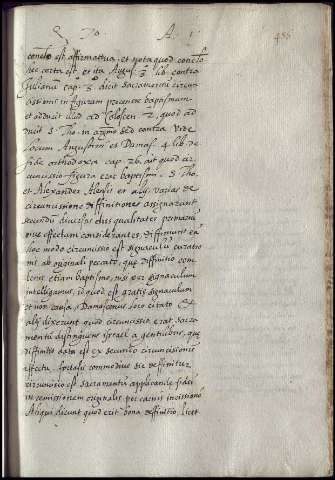 Q 70 A. 1 486
conclo est affirmativa, et nota quod conclo
hec certa est, et ita Augus. 3 lib. contra
Julianum cap. 3. dicit sacramentum circun
in figuram precurrere baptismum
et adducit illud ad Colosen. 2. quod ad
ducit S. Tho. in argumo sed contra Vide
locum Augustini et Damas. 4. lib. de
fide orthodoxa cap. 26. ait quod cir
cuncissio figura erat baptismi. S. Tho.
et Alexander Alensis et alij varias de
circuncissione diffinitiones assignarunt,
secundum diversas eius qualitates
eius effectum considerantes, diffiniunt
hoc modo circuncissio est signaculum curatio
nis ab originali peccato, que diffinitio con
etiam baptismo, nisi per signaculum
intelligamus, id quod est gratis signaculum
et non causa, Damascenus loco citato et
alij dixerunt quod circuncissio erat sacra
mentum distinguens israel a gentibus, que
diffinitio data est ex secundo circuncissionis
effectu, fortasis commodius sic deffinitur
circuncissio est sacramentum applicans fidei
in remissionem originalis per carnis incissionem
Aliqui dicunt quod erit bona deffinitio, licet